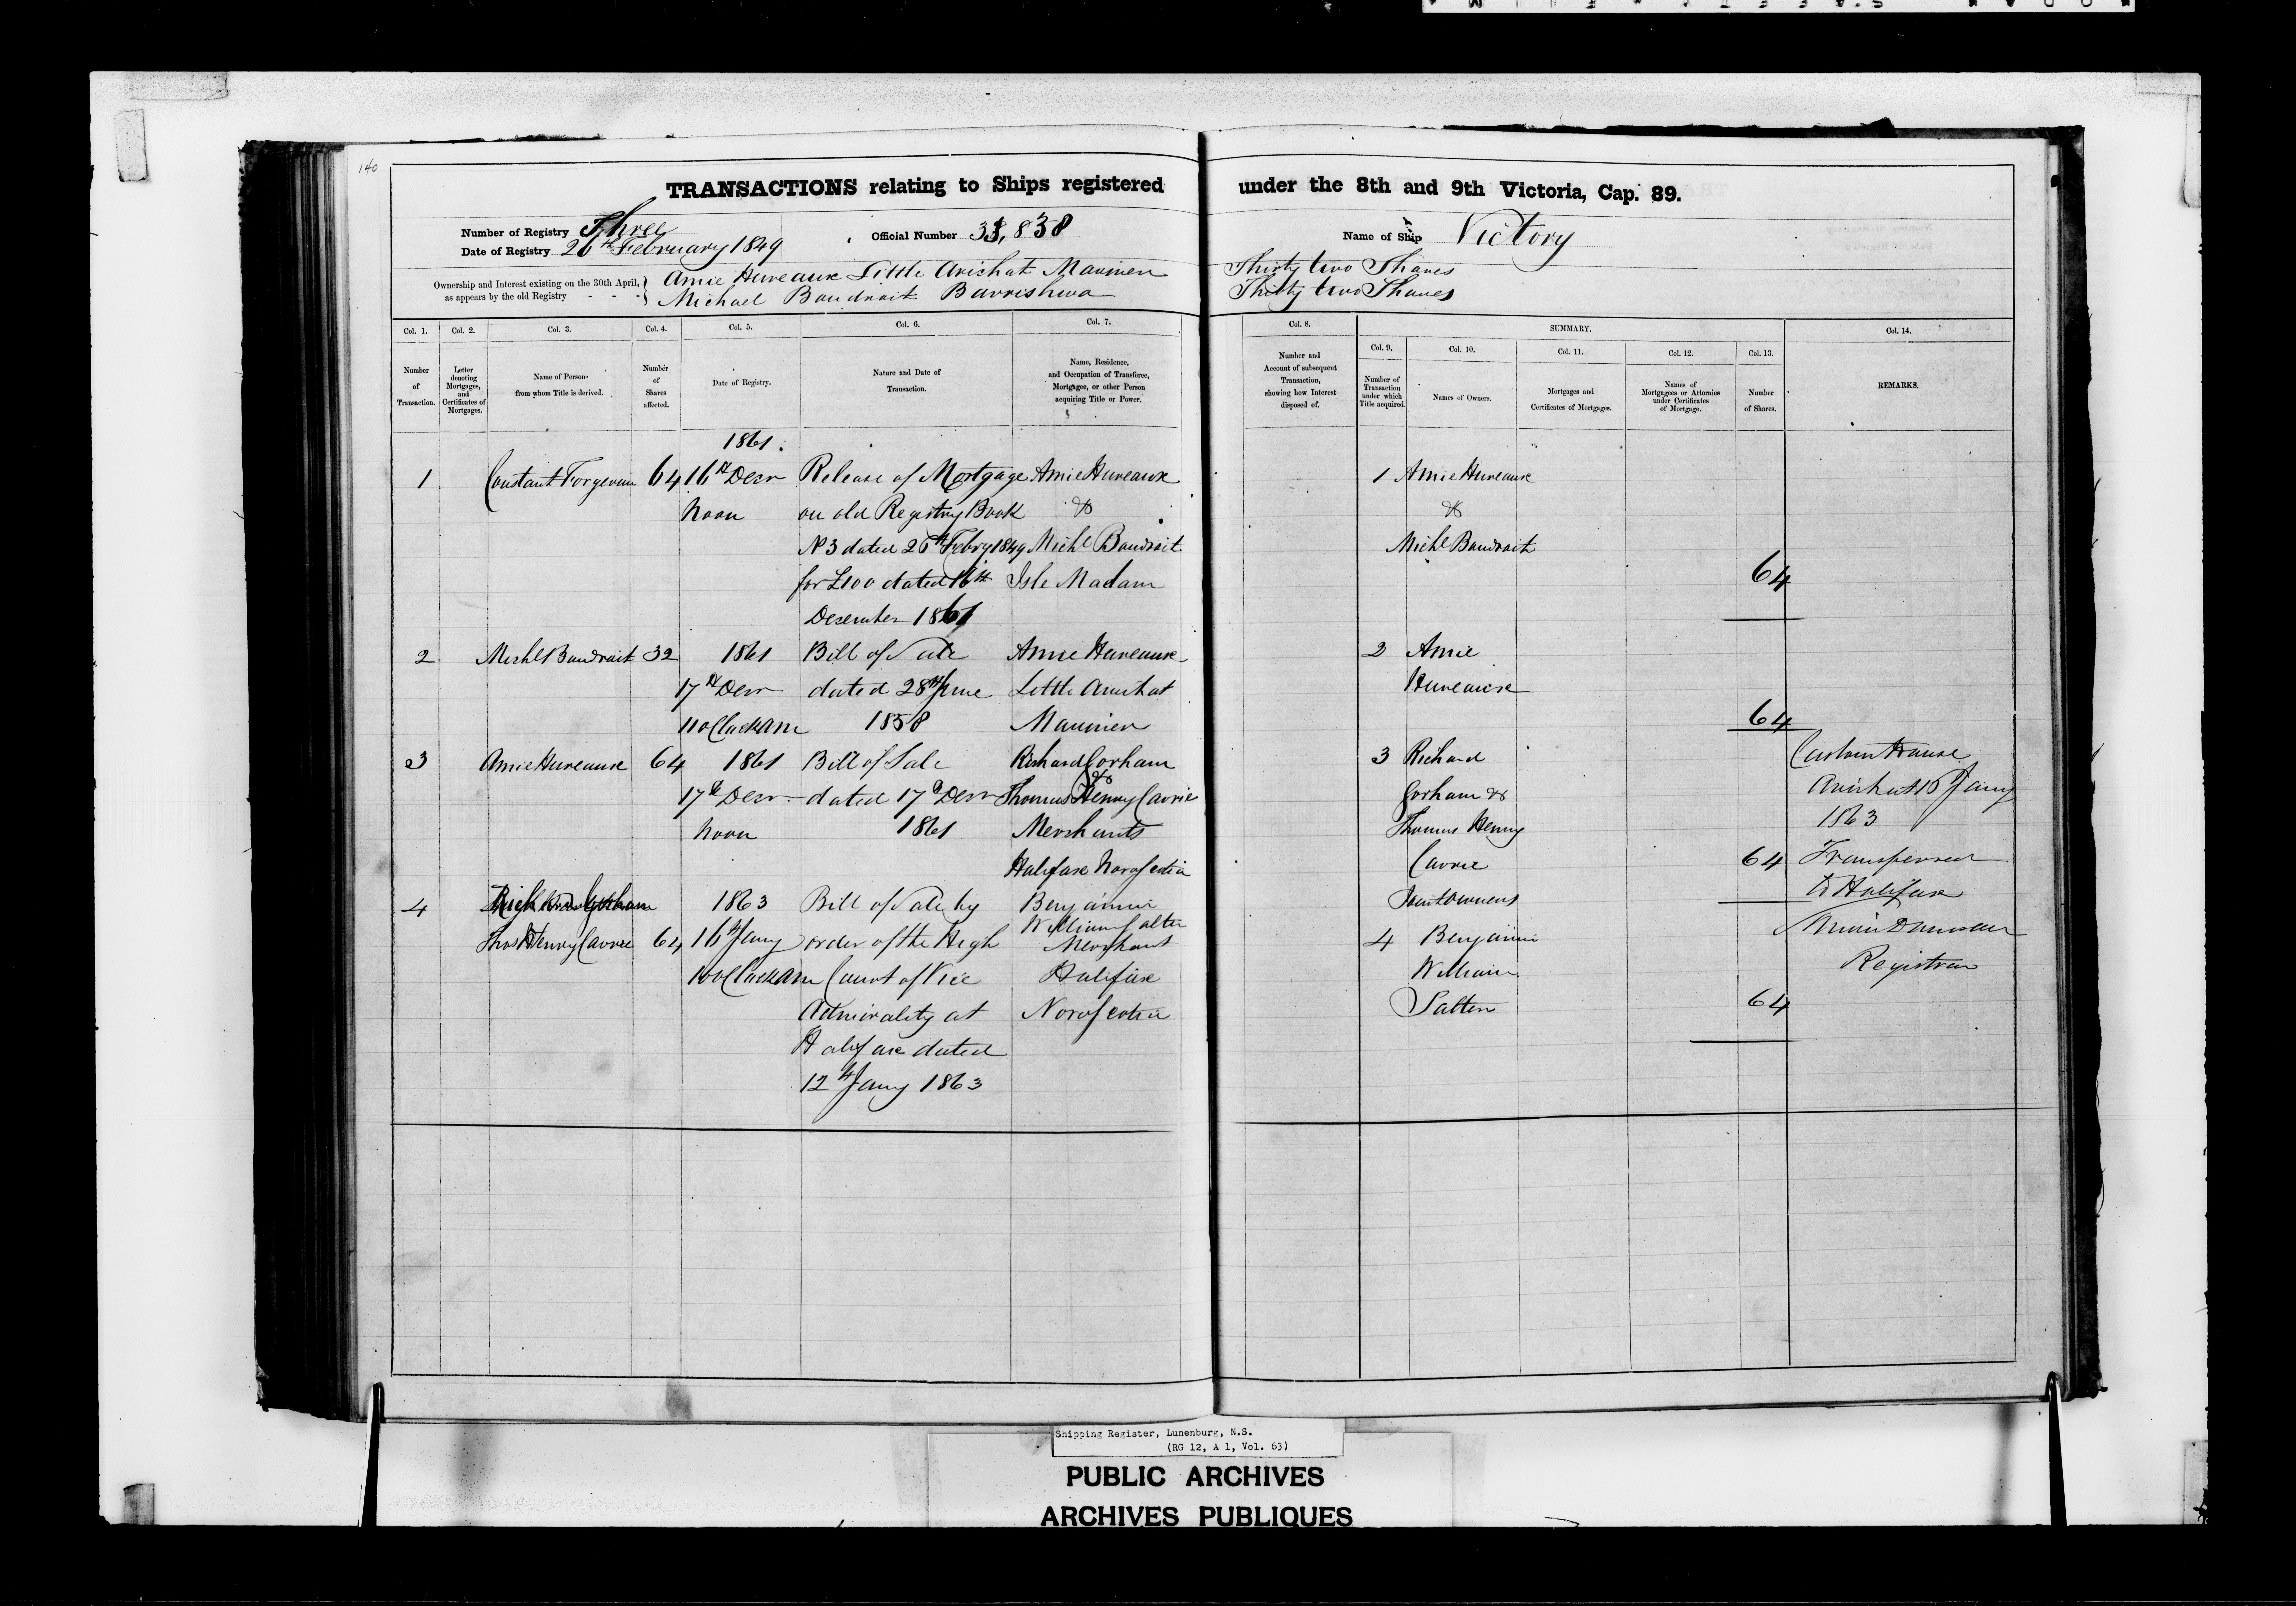 140
TRANSACTIONS relating to Ships registered under the 8th and 9th Victoria, Cap. 89.
Number of Registry Three
Official Number 33,838
Name of Ship Victory
Date of Registry 26th February 1849
Ownership and Interest existing on the 30th April, as appears by the old Registry
Amie Hureaux Little Arichat Mariner Thirty two Shares
Michael Boudroit Thirty two Shares
Col. 1. Col. 2. Col. 3. Col. 4. Col. 5. Col. 6. Col. 7. Col. 8. SUMMARY. Col. 14.
Col. 9. Col. 10. Col. 11. Col. 12. Col. 13.
Number of Transaction.
Letter denoting Mortgages, and Certificates of Mortgages.
Name of Person from whom Title is derived.
Number of Shares affected.
Date of Registry.
Nature and Date of Transaction.
Name, Residence, and Occupation of Transferee, Mortgagee, or other Person acquiring Title or Power.
Number and Account of subsequent Transaction, showing how Interest disposed of.
Number of Transaction under which Title acquired.
Names of Owners.
Mortgages and Certificates of Mortgages.
Names of Mortgagees or Attornies under Certificates of Mortgage.
Number of Shares.
REMARKS.
1861.
1 Constant Forgeron 64 16th Decr Release of Mortgage Amie Hureaux 1 Amie Hureaux
Noon on old Registry Book & &
No 3 dated 26th Febry 1849 Michl Boudroit Michl Boudroit
for £100 dated 16th Isle Madam 64
December 1861
2 Michl Boudroit 32 1861 Bill of Sale Amie Hureaux 2 Amie
17th Decr dated 28th June Little Arichat Hureaux
11 oClock am 1858 Mariner 64
3 Amie Hureaux 64 1861 Bill of Sale Richard Gorham & 3 Richard
17th Decr dated 17th Decr Thomas Henry Corrie Gorham &
Noon 1861 Merchants Thomas Henry
Halifax Nova Scotia Corrie 64
Joint Owners
Custom House
Arichat 16 Jany
1863
Transferred
to Halifax
Registrar
4 Gorham 1863 Bill of Sale by Benjamin
Thos Henry Corrie 64 16th Jany order of the High William Salter Merchant 4 Benjamin
10 oClock am Court of Vice Halifax William
Admiralty at Nova Scotia Salter 64
Halifax dated
12th Jany 1863
Shipping Register, Lunenburg, N.S.
(RG 12, A 1, Vol. 63)
PUBLIC ARCHIVES
ARCHIVES PUBLIQUES